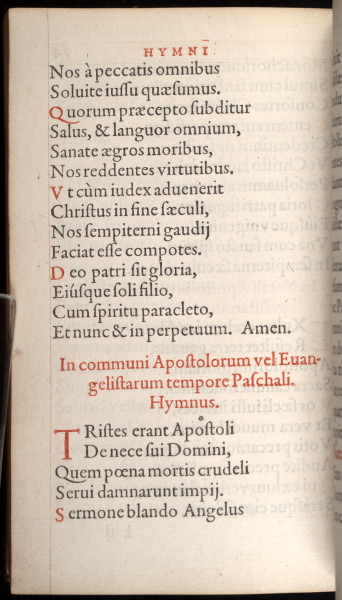 HYMNI
Nos à peccatis omnibus
Soluite iussu quæsumus.
Quorum præcepto subditur
Salus, & languor omnium,
Sanate ægros moribus,
Nos reddentes virtutibus.
Vt cùm iudex aduenerit
Christus in fine sæculi,
Nos sempiterni gaudij
Faciat esse compotes.
Deo patri sit gloria,
Eiúsque soli filio,
Cum spiritu paracleto,
Et nunc & in perpetuum. Amen.
In communi Apostolorum vel Euan-
gelistarum tempore Paschali.
Hymnus.
TRistes erant Apostoli
De nece sui Domini,
Quem pœna mortis crudeli
Serui damnarunt impij.
Sermone blando Angelus